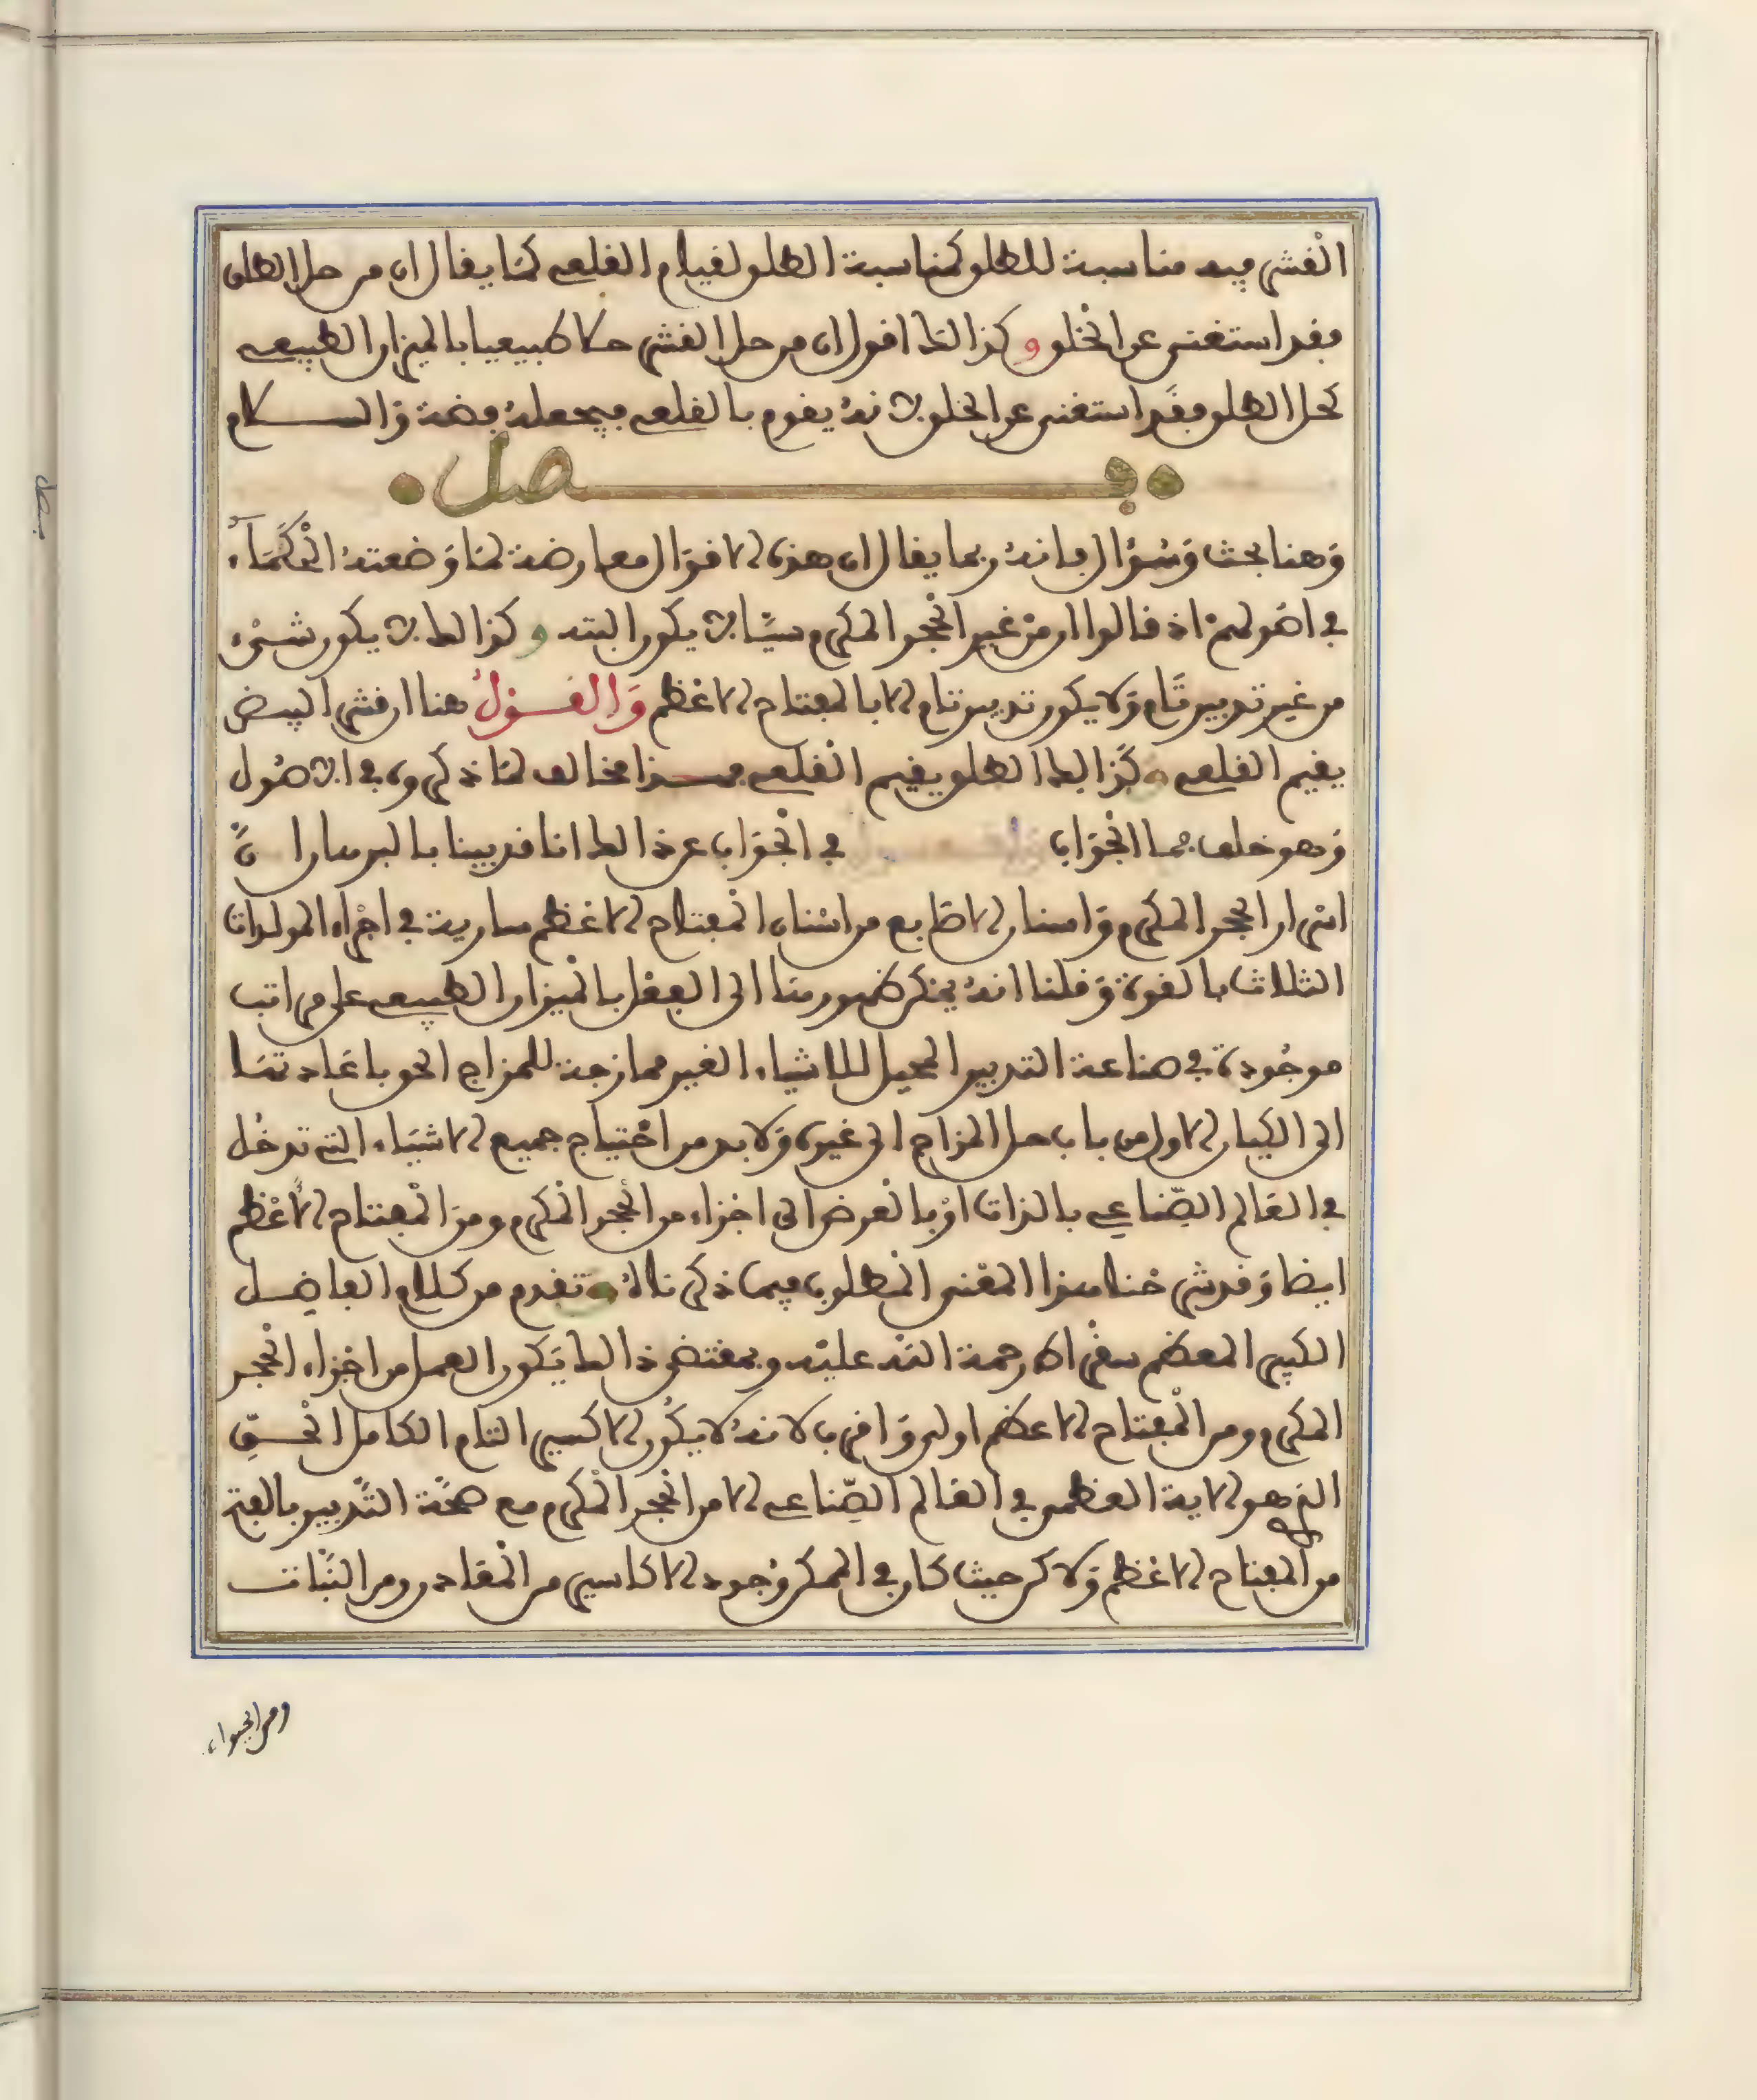 القشر فيه مناسبة للطلق كمناسبة الطلق لقيام القلعى كما يقال ان من حل الطلق
فقد استغنى عن الخلق وكذالك اقول ان من حل القشر حلا طبيعيا بالميزان الطبيعى
كحل الطلق فقد استغنى عن الخلق لانه يقوم بالقلعى فيجعله فضة والسلام
فصل
وهنا بحث وسؤال فانه ربما يقال ان هذه الاقوال معارضة لما وضعته الحكماء
فى اصولهم اذ قالوا ان من غير الحجر المكرم شيئا لا يكون البته وكذالك لا يكون شىء
من غير تدبير تام ولا يكون تدبير تام الا بالمفتاح الاعظم والقول هنا ان قشر البيض
يقيم القلعى وكذالك الطلق يقيم القلعى فهذا مخالف لما ذكروه فى الاصول
وهو خلف فما الجواب فى الجواب عن ذالك انا قد بينا بالبرهان ان
اسرار الحجر المكرم واسنان الاصابع من اسنان المفتاح الاعظم سارية فى اجزاء المولدات
الثلاث بالقوة وقلنا انه يمكن ظهورها الى الفعل بالميزان الطبيعى على مراتب
موجودة فى صناعة التدبير المحيل للاشياء الغير ممازجة للمزاج الحق باعادتها
الى الكيان الاول من باب حل المزاج الى غيره ولا بد من احتياج جميع الاشياء التى تدخل
فى العالم الصناعى بالذات او بالعرض الى اجزاء من الحجر المكرم ومن المفتاح الاعظم
ايضا وقد شرحنا هذا المعنى المطلوب فيما ذكرناه وتقدم من كلام الفاضل
الكبير المعظم سقراط رحمة الله عليه وبمقتضى ذالك يكون العمل من اجزاء الحجر
المكرم ومن المفتاح الاعظم اولى واقرب لانه لا يكون الاكسير التام الكامل الحق
الذى هو الاية العظمى فى العالم الصناعى الا من الحجر المكرم مع صحة التدبير بالفتح
من المفتاح الاعظم ولاكن حيث كان فى الممكن وجود الاكاسير من المعادن ومن النبات
ومن الحيوان
فصل